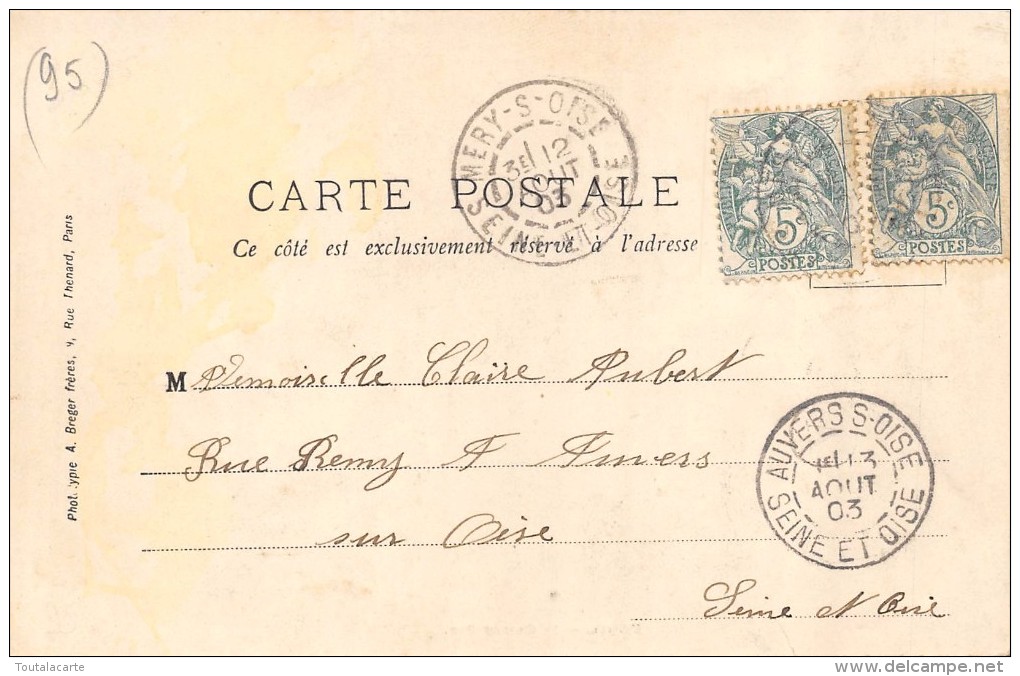 95
MERY-S-OISE
3E 12
AOUT
03
SEINE ET OISE
5c
POSTES
5c
POSTES
CARTE POSTALE
Ce côté est exclusivement réservé à l'adresse
Mademoiselle Claire Aubert
Rue Remy A Auvers
sur Oise
Seine et Oise
AUVERS S-OISE
1E 13
AOUT
03
SEINE ET OISE
Phototypie A. Breger frères, 9, Rue Thenard, Paris
Toutalacarte
delcampe.net